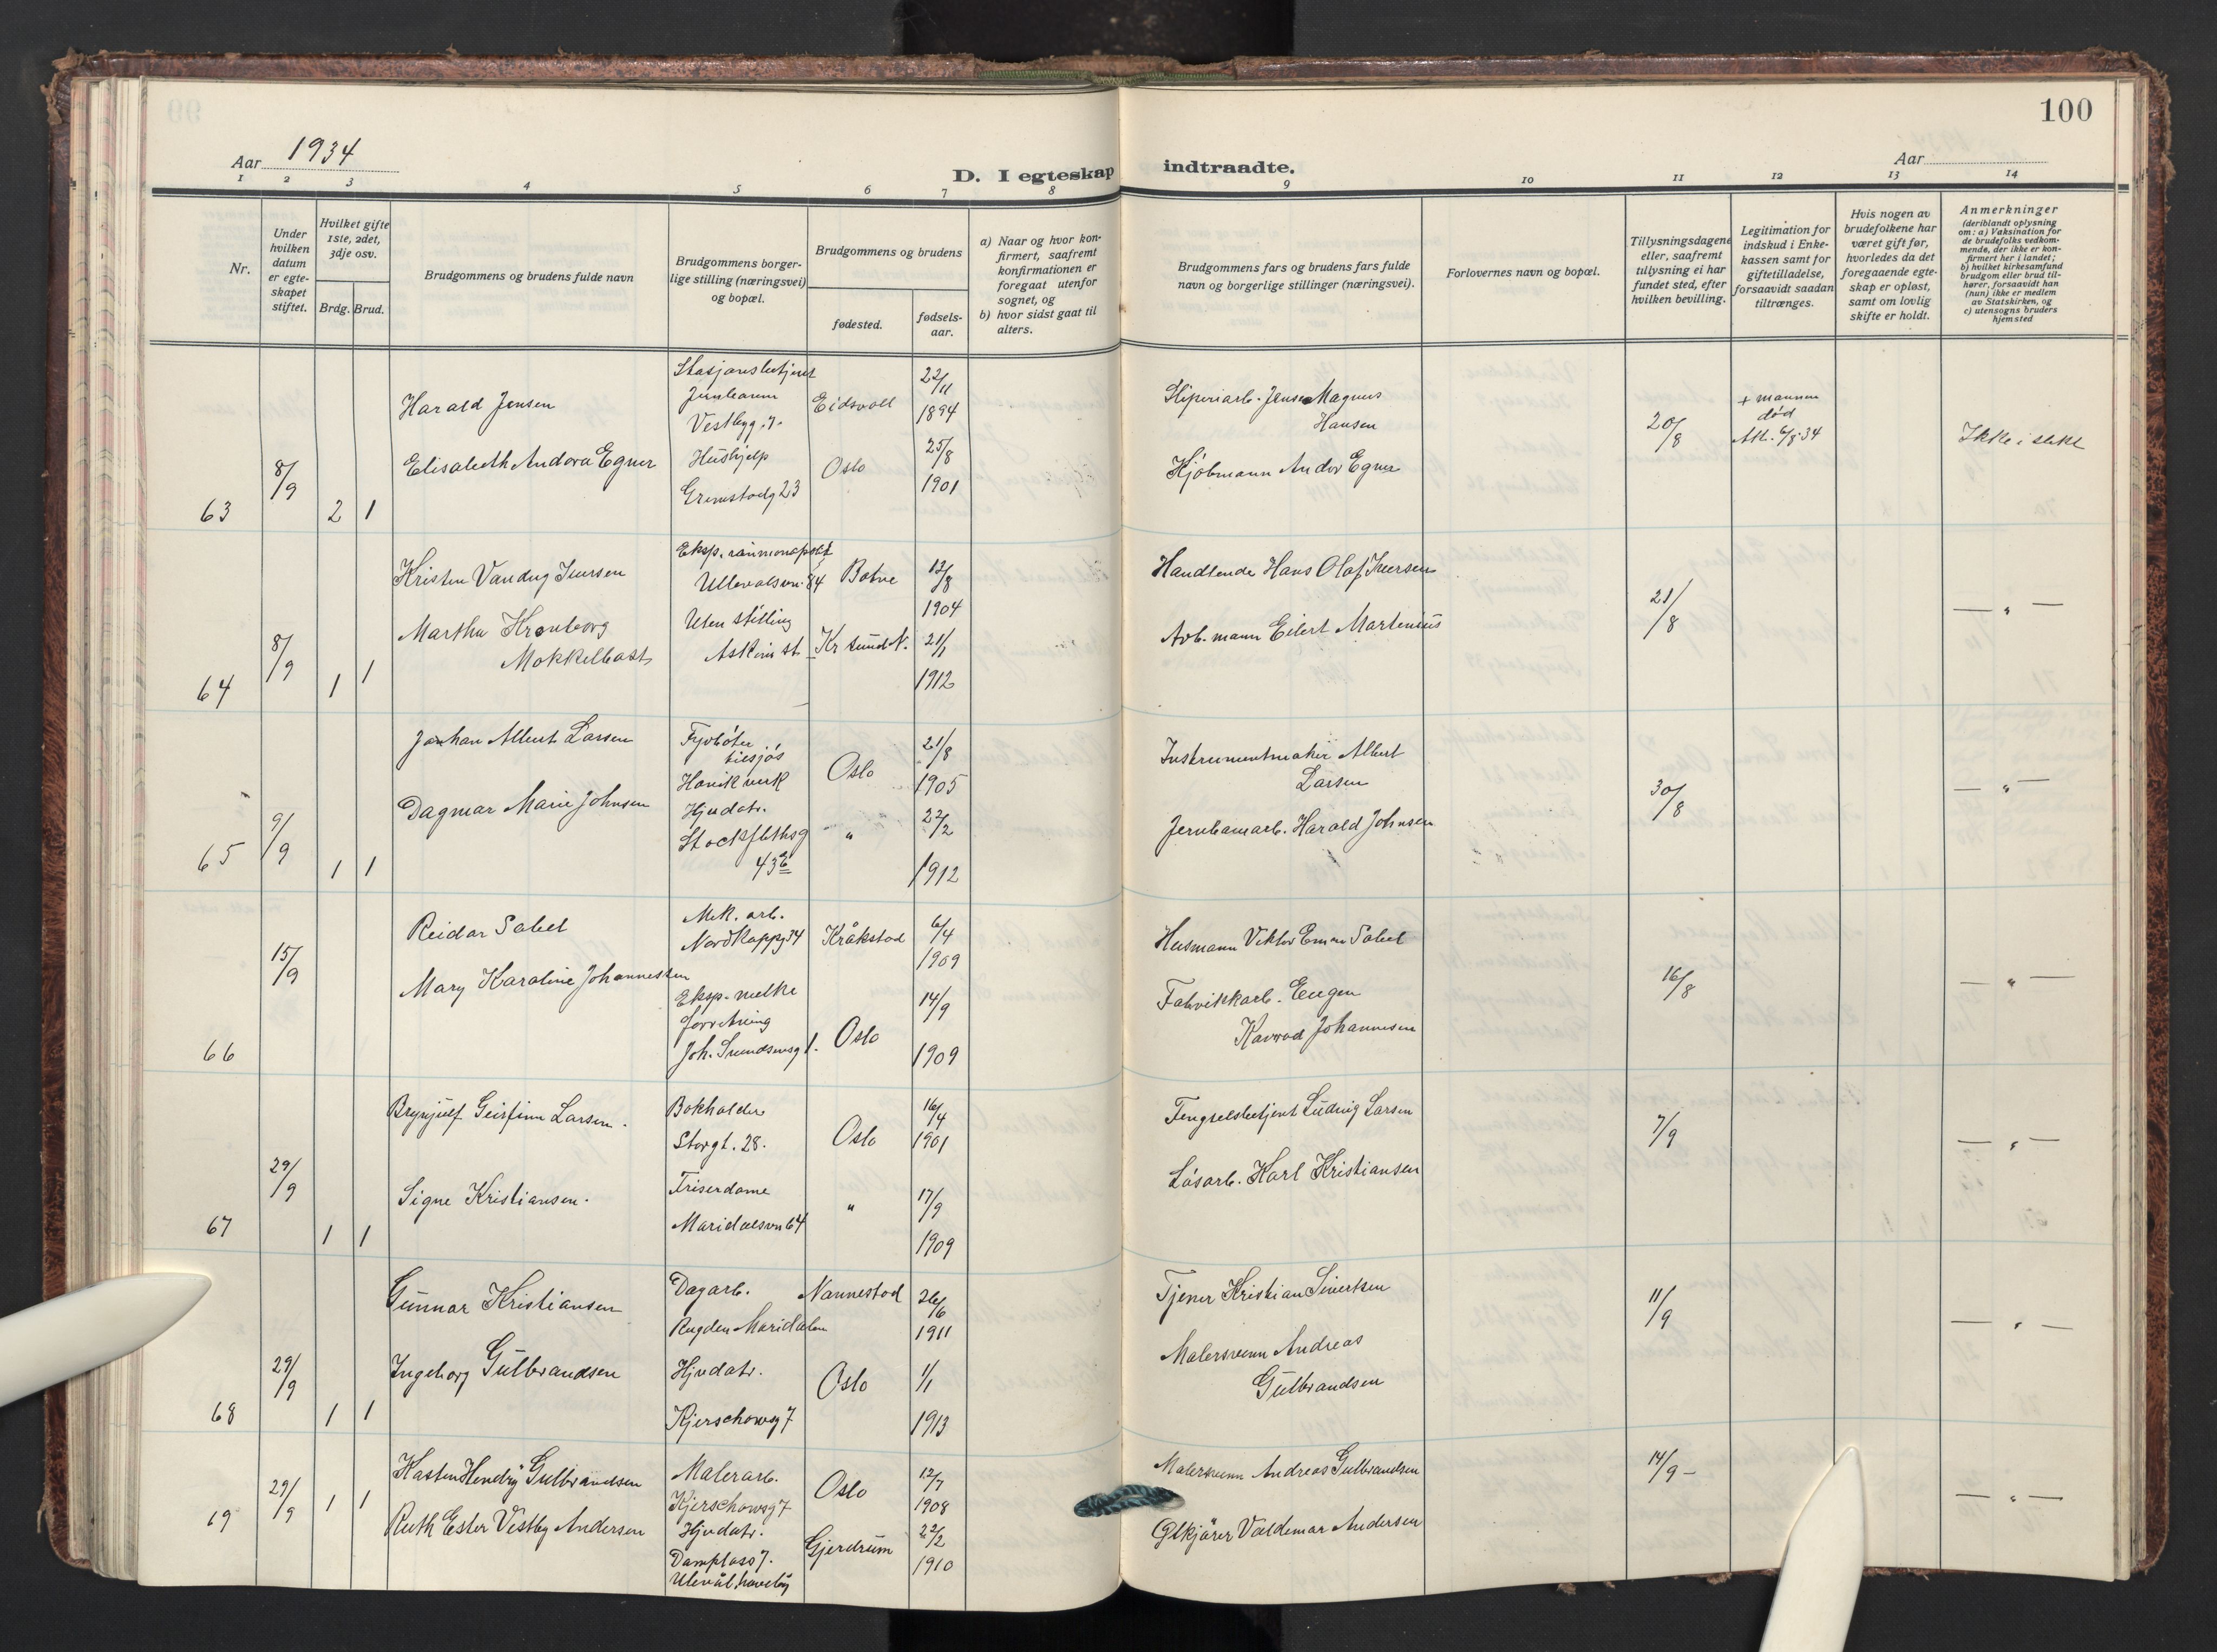 100
Aar 1934
D. I egteskap indtraadte.
Aar
1 2 3 4 5 6 7 8 9 10 11 12 13 14
Nr.
Under hvilken datum er egte-skapet stiftet.
Hvilket gifte 1ste, 2det, 3dje osv.
Brdg. Brud.
Brudgommens og brudens fulde navn
Brudgommens borger-lige stilling (næringsvei) og bopæl.
Brudgommens og brudens
fødested.
fødsels-aar.
a) Naar og hvor kon-firmert, saafremt konfirmationen er foregaat utenfor sognet, og
b) hvor sidst gaat til alters.
Brudgommens fars og brudens fars fulde navn og borgerlige stillinger (næringsvei).
Forlovernes navn og bopæl.
Tillysningsdagene eller, saafremt tillysning ei har fundet sted, efter hvilken bevilling.
Legitimation for indskud i Enke-kassen samt for giftetilladelse, forsaavidt saadan tiltrænges.
Hvis nogen av brudefolkene har været gift før, hvorledes da det foregaaende egte-skap er opløst, samt om lovlig skifte er holdt.
Anmerkninger
(deriblandt oplysning om: a) Vaksination for de brudefolks vedkom-mende, der ikke er kon-firmert her i landet; b) hvilket kirkesamfund brudgom eller brud til-hører, forsaavidt han (hun) ikke er medlem av Statskirken, og c) utensogns bruders hjemsted
63
8/9
2 1
Harald Jensen
Stasjonsbetjent
Jernbanen
Vestbyg. 7.
Eidsvoll
22/11
1894
Slipperiarb. Jens Magnus
Hansen
20/8
+ mannen
død
Att. 6/8 34
Ikke i slekt
Elisabeth Andora Egner
Hushjelp
Grimstadg 23
Oslo
25/8
1901
Kjøbmann Andor Egner
64
8/9
1 1
Kristen Vandug Iversen
Ullevålsvn. 84
Botne
13/8
1904
Handlende Hans Olaf Iversen
21/8
— " —
Martha Kronborg
Mokkelbost
Uten stilling
Askim st.
Kr sund N.
21/1
1912
Arb. mann Eilert Martenius
65
9/9
1 1
Johan Albert Larsen
Fyrbøter
tilsjøs
Høvik verk
Oslo
21/8
1905
Instrumentmaker Albert
Larsen
30/8
— " —
Dagmar Marie Johnsen
Hjvdatr.
Stockflethsg
43 E
"
22/2
1912
Jernbanearb. Harald Johnsen
66
15/9
Reidar Sabel
Mek. arb.
Nordkappg 34
Kråkstad
6/4
1909
Husmann Viktor Eman Sabel
16/8
— " —
Mary Karoline Johannessen
Eksp. melke
forretning
Joh. Svendsensg 1.
Oslo
14/9
1909
Fabrikkarb. Eugen
Konrad Johannesen
67
29/9
1 1
Brynjulf Geirfinn Larsen.
Bokholder
Storgt. 28.
Oslo
16/4
1901
Fengselsbetjent Ludvig Larsen
7/9
— " —
Signe Kristiansen.
Friserdame
Maridalsvn 64
"
17/9
1909
Løsarb. Karl Kristiansen
68
29/9
1 1
Gunnar Kristiansen
Dagarb.
Rugden Maridalen
Nannestad
26/6
1911
Tjener Kristian Sivertsen
11/9
— " —
Ingeborg Gulbrandsen
Hjvdatr.
Kjerschowsg 7
Oslo
1/1
1913
Malersvenn Andreas
Gulbrandsen
69
29/9
1 1
Karsten Hendry Gulbrandsen
Malerarb.
Kjerschowsg 7
Oslo
12/7
1908
Malersvenn Andreas Gulbrandsen
14/9 -
— " —
Ruth Ester Vestby Andersen
Hjvdatr.
Damplass 7.
Ulevål, haveby
Gjerdrum
22/2
1910
Ølkjører Valdemar Andersen